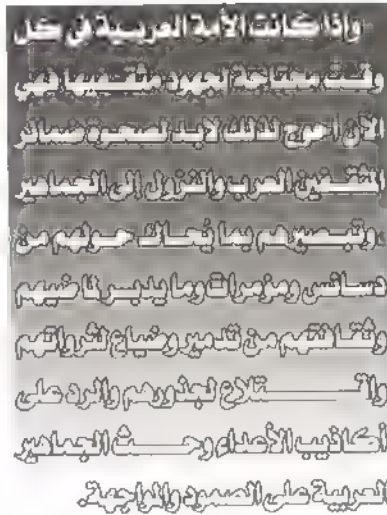 وإذا كانت الأمة العربية في كل
وقت محتاجة لجهود مثقفيها فهي
الآن أحوج لذلك لابد لصحوة ضمائر
المثقفين العرب والنزول إلى الجماهير
وتبصيرهم بما يُحاك حولهم من
دسائس ومؤمرات وما يدبر لماضيهم
وثقافتهم من تدمير وضياع لثرواتهم
واقتلاع لجذورهم والرد على
أكاذيب الأعداء وحث الجماهير
العربية على الصمود والمواجهة.